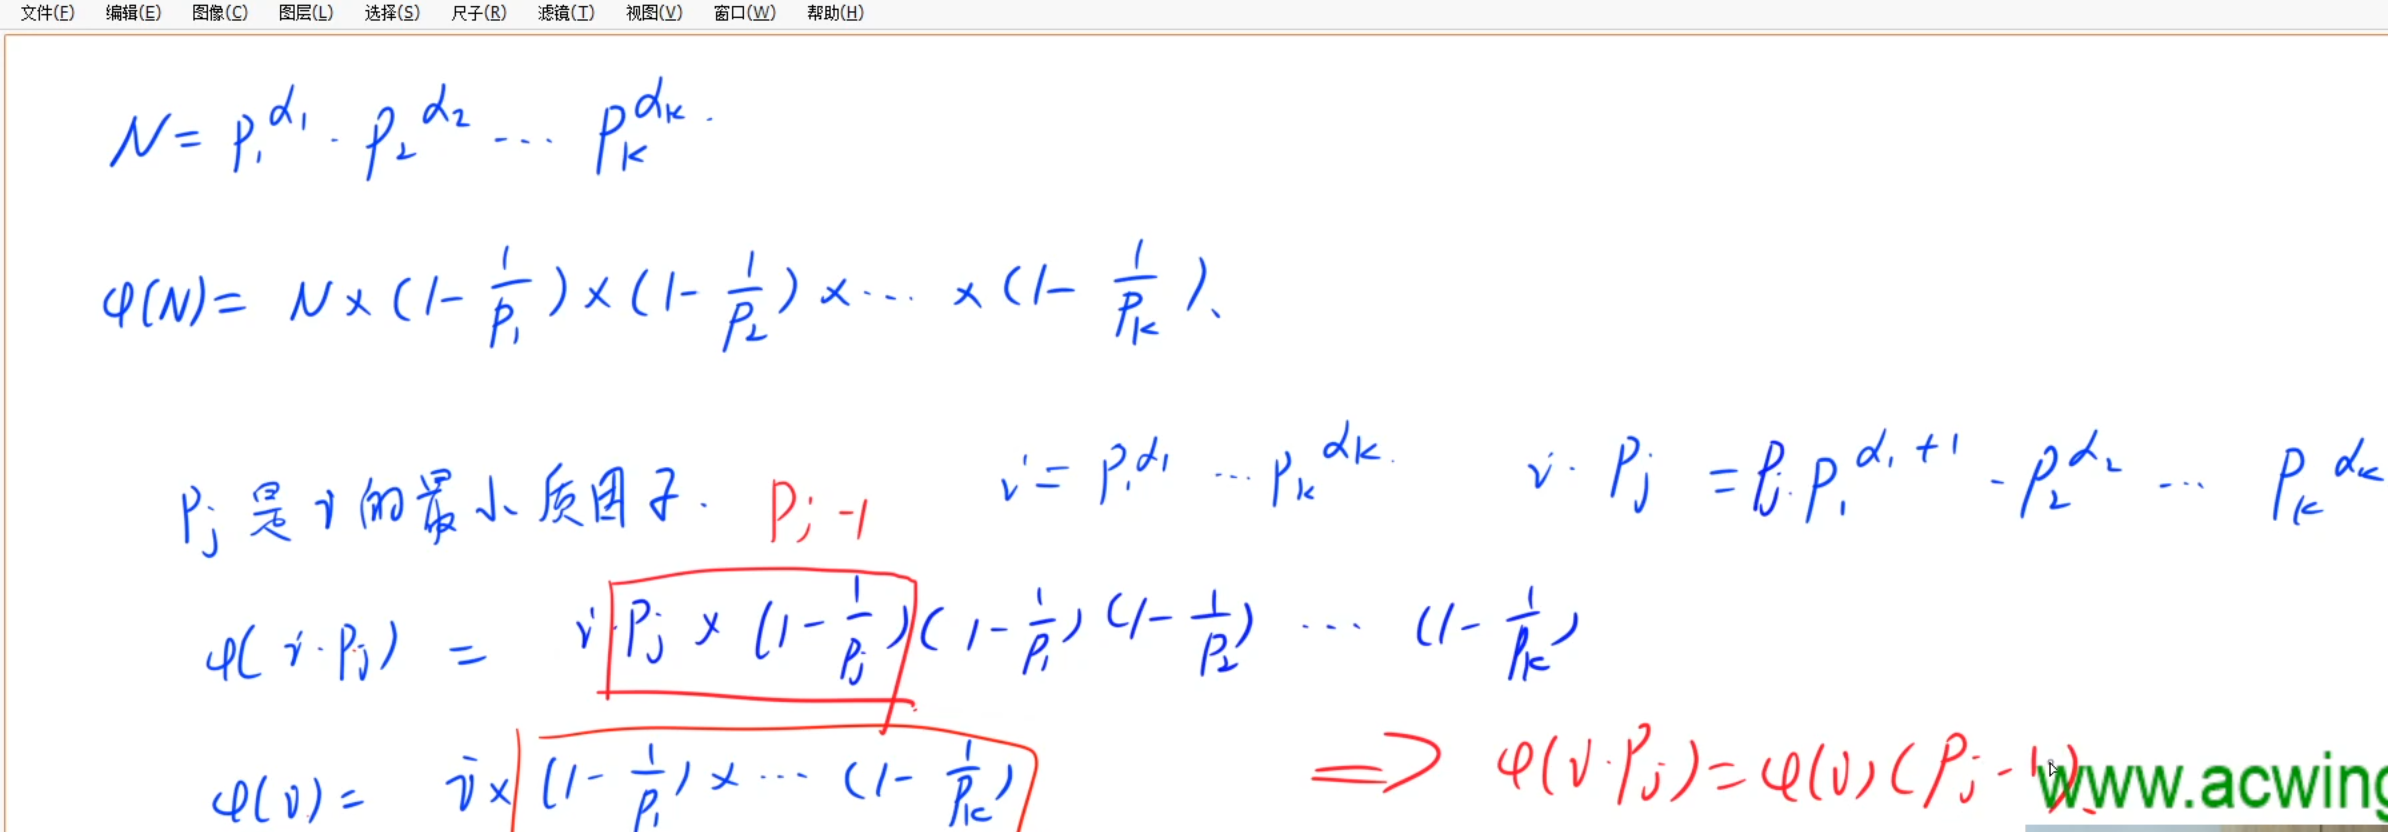 文件(F) 编辑(E) 图像(C) 图层(L) 选择(S) 尺子(R) 滤镜(T) 视图(V) 窗口(W) 帮助(H)
N = P₁^α₁ · P₂^α₂ ... Pₖ^αₖ.
φ(N) = N × (1 - 1/P₁) × (1 - 1/P₂) × ... × (1 - 1/Pₖ)、
Pj 是 i 的最小质因子. Pj -1 i = P₁^α₁ ... Pₖ^αₖ. i · Pj = Pj · P₁^α₁+1 · P₂^α₂ ... Pₖ^αₖ
φ(i · Pj) = i · Pj × (1 - 1/Pj) (1 - 1/P₁) (1 - 1/P₂) ... (1 - 1/Pₖ)
φ(i) = i × (1 - 1/P₁) × ... (1 - 1/Pₖ) => φ(i · Pj) = φ(i) (Pj - 1).
www.acwing